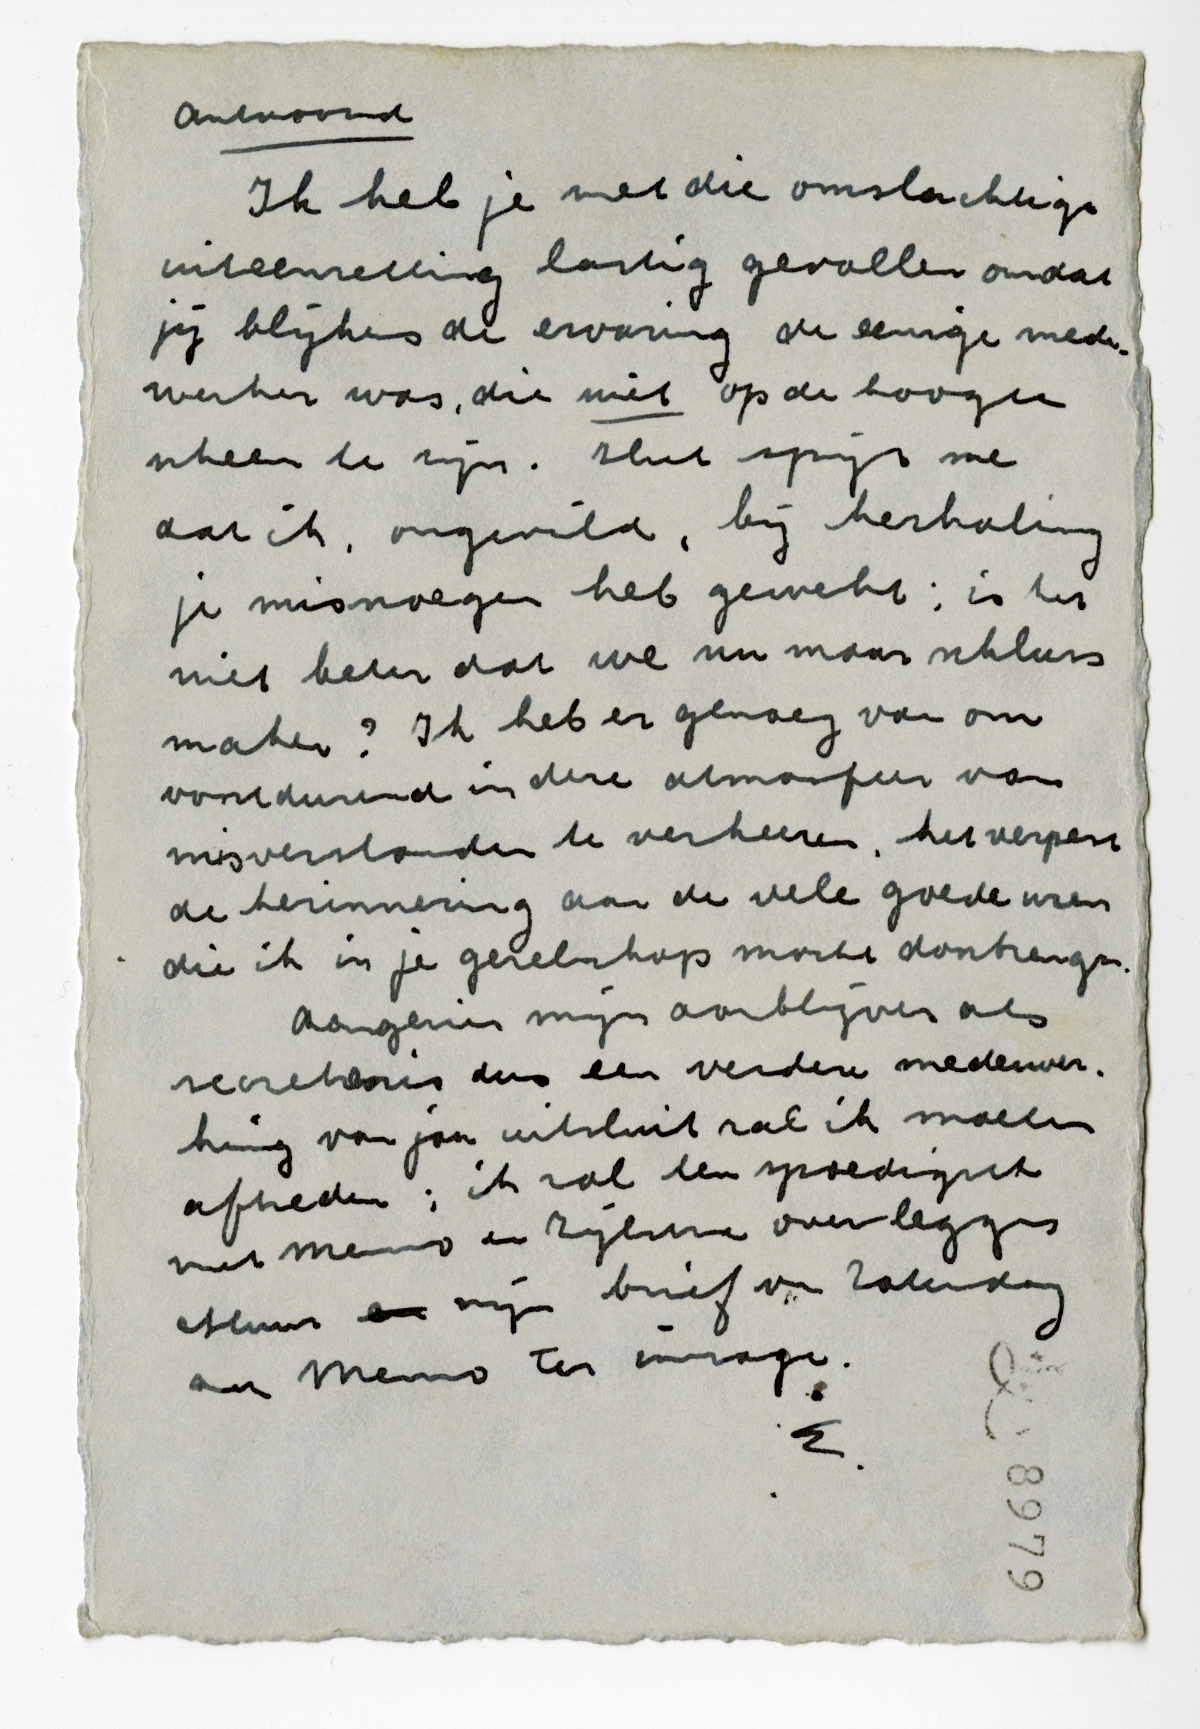 Antwoord
Ik heb je met die omslachtige
uiteenzetting lastig gevallen omdat
jij blijkens de ervaring de eenige mede-
werker was, die niet op de hoogte
scheen te zijn. Het spijt me
dat ik, ongewild, bij herhaling
je misnoegen heb gewekt; is het
niet beter dat we nu maar schluss
maken? Ik heb er genoeg van om
voortdurend in deze atmosfeer van
misverstanden te verkeeren, het verpest
de herinnering aan de vele goede uren
die ik in je gezelschap mocht doorbrengen.
Aangezien mijn aanblijven als
secretaris dus een verdere medewer-
king van jou uitsluit zal ik moeten
aftreden; ik zal ten spoedigste
met Menno en Zijlstra overleggen
stuur en mijn brief van Zaterdag
aan Menno ter inzage.
E.
8979